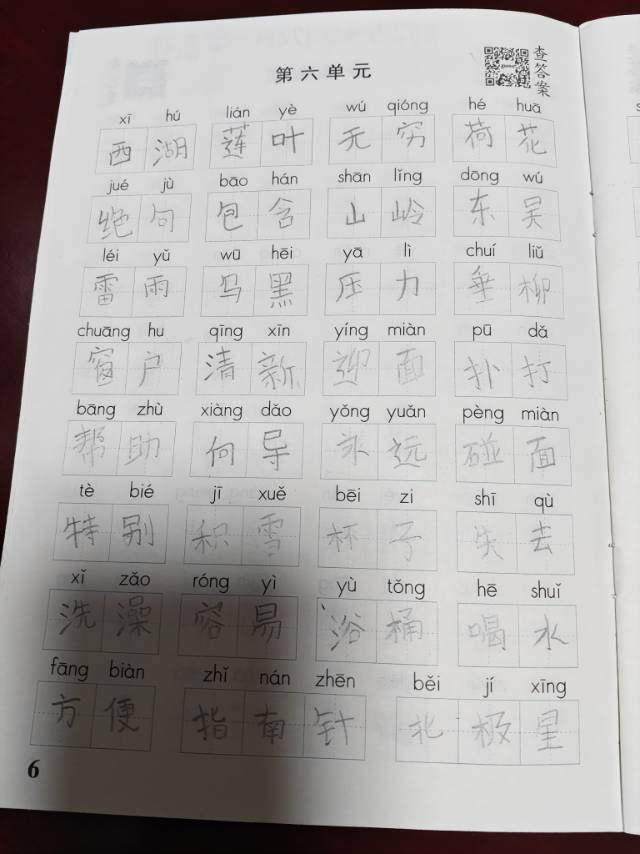 第六单元
查答案
xī hú lián yè wú qióng hé huā
西湖 莲叶 无穷 荷花
jué jù bāo hán shān lǐng dōng wú
绝句 包含 山岭 东吴
léi yǔ wū hēi yā lì chuí liǔ
雷雨 乌黑 压力 垂柳
chuāng hu qīng xīn yíng miàn pū dǎ
窗户 清新 迎面 扑打
bāng zhù xiàng dǎo yǒng yuǎn pèng miàn
帮助 向导 永远 碰面
tè bié jī xuě bēi zi shī qù
特别 积雪 杯子 失去
xǐ zǎo róng yì yù tǒng hē shuǐ
洗澡 容易 浴桶 喝水
fāng biàn zhǐ nán zhēn běi jí xīng
方便 指南针 北极星
6